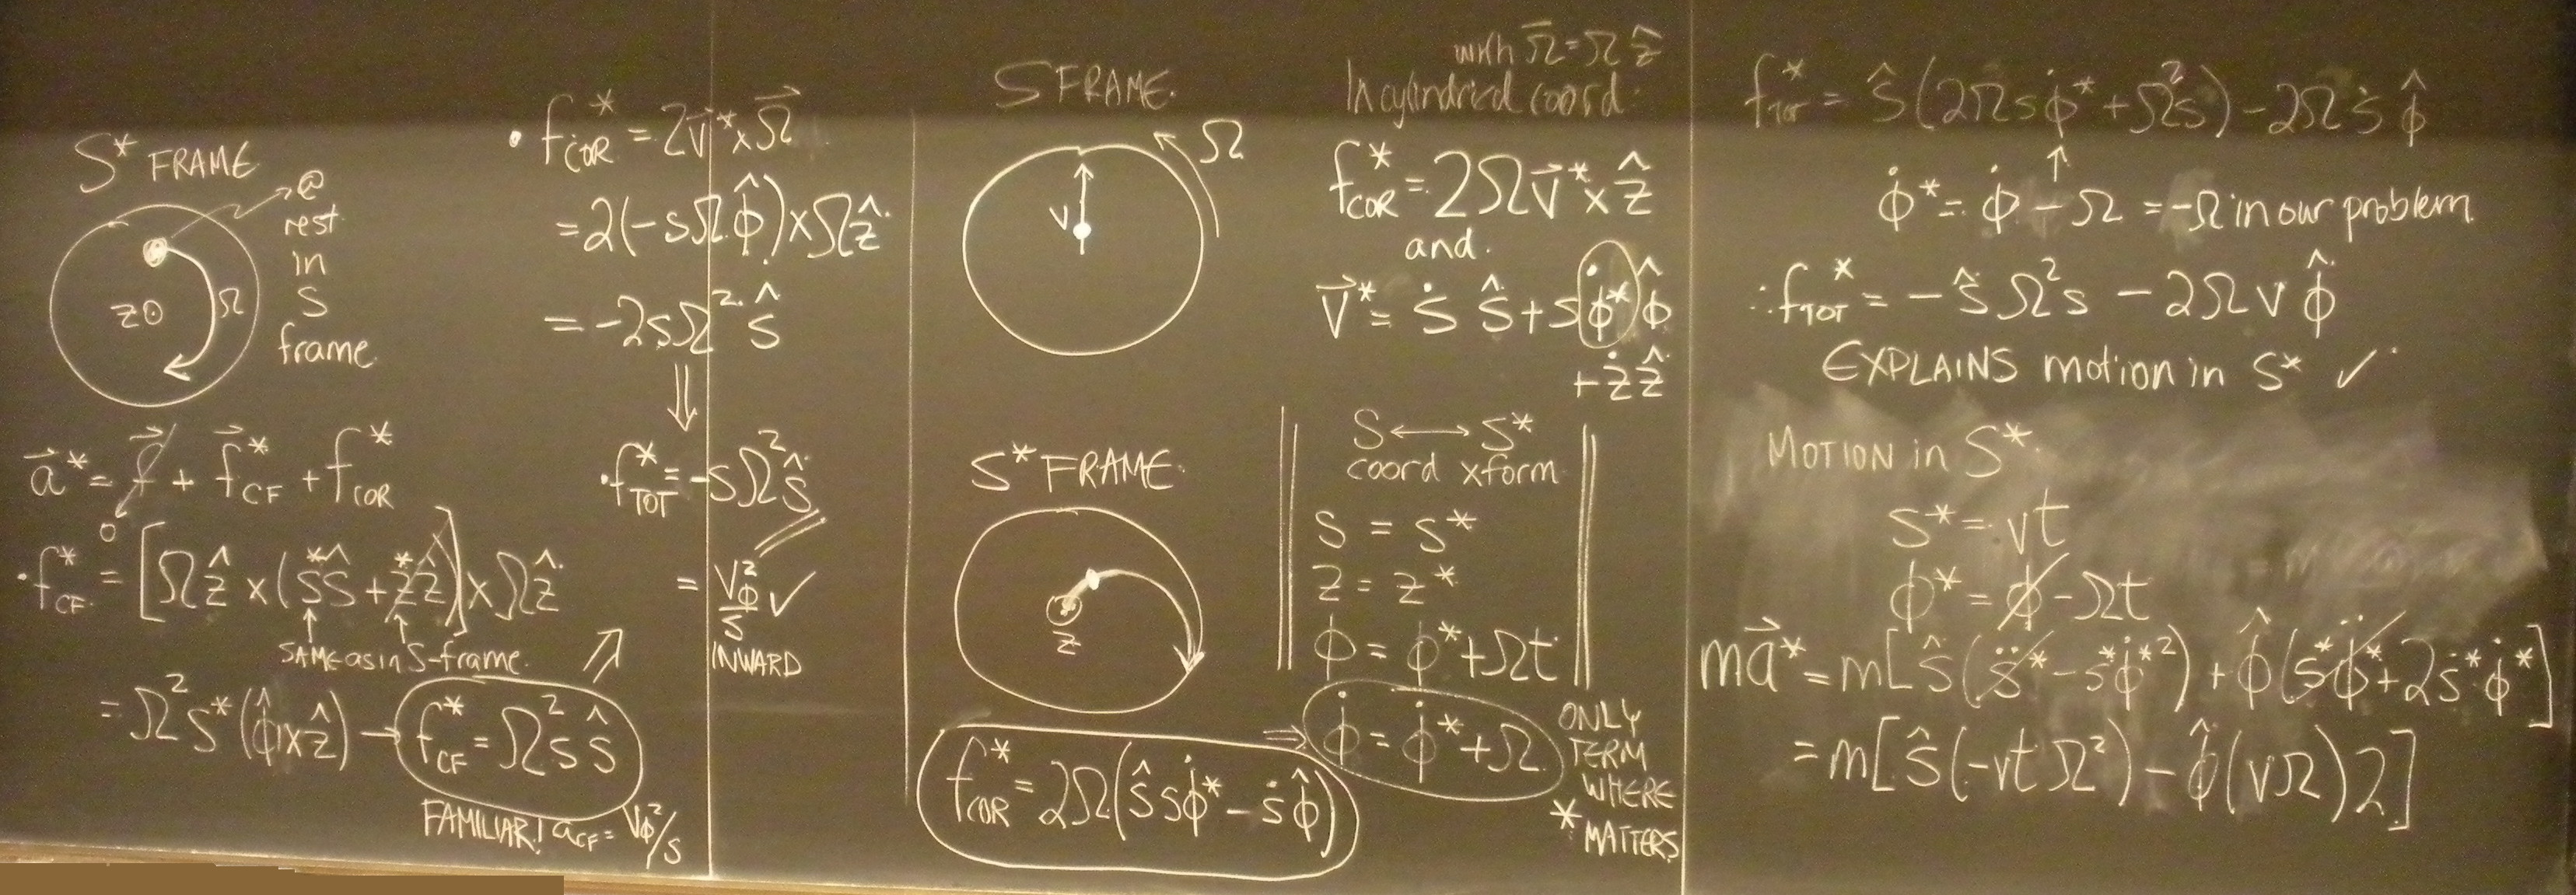 S* FRAME
@
rest
in
S
frame.
Ω
z⊙
a⃗* = f⃗ + f⃗*_CF + f*_COR
0
• f*_CF = [Ωẑ × (s*ŝ + z*ẑ)] × Ωẑ
↑ ↑
SAME as in S-frame.
= Ω²s*(ϕ̂ × ẑ) → f*_CF = Ω²s ŝ
FAMILIAR! a_CF = Vϕ²/s
• f*_COR = 2v⃗* × Ω⃗
= 2(-sΩϕ̂) × Ωẑ
= -2sΩ² ŝ
⇓
• f*_TOT = -sΩ² ŝ
= Vϕ²/s ✓
INWARD
S FRAME
Ω
v
S* FRAME
z
f*_COR = 2Ω(ŝ sϕ̇* - ṡϕ̂)
with Ω⃗ = Ω ẑ
In cylindrical coord.
f*_COR = 2Ωv⃗* × ẑ
and
v⃗* = ṡ ŝ + sϕ̇*ϕ̂
+ żẑ
S ⟷ S*
coord xform
s = s*
z = z*
ϕ = ϕ* + Ωt
⇒ ϕ̇ = ϕ̇* + Ω
ONLY
TERM
WHERE
*
MATTERS
f*_TOT = ŝ(2Ωsϕ̇* + Ω²s) - 2Ωṡ ϕ̂
↑
ϕ̇* = ϕ̇ - Ω = -Ω in our problem
∴ f*_TOT = -ŝΩ²s - 2Ωv ϕ̂
EXPLAINS motion in S* ✓
MOTION in S*
s* = vt
ϕ* = ϕ - Ωt
ma⃗* = m[ŝ(s̈* - s*ϕ̇*²) + ϕ̂(s*ϕ̈* + 2ṡ*ϕ̇*]
= m[ŝ(-vtΩ²) - ϕ̂(vΩ)2]